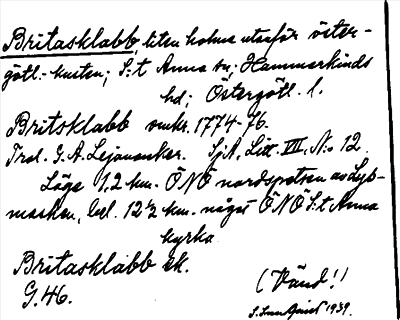 Britasklabb, liten holme utanför öster-
götl.-kusten; S:t Anna sn; Hammarkinds
hd; Östergötl. l.
Britsklabb omkr. 1774-76.
Trol. G. A. Lejonanker. SjA, Litt. III, N:o 12.
Läge 1,2 km. ÖNÖ nordspetsen av Lyb-
masken, bel. 12 1/2 km. något ÖNÖ S:t Anna
kyrka
Britasklabb ek.
G. 46.
(Vänd!)
1939.